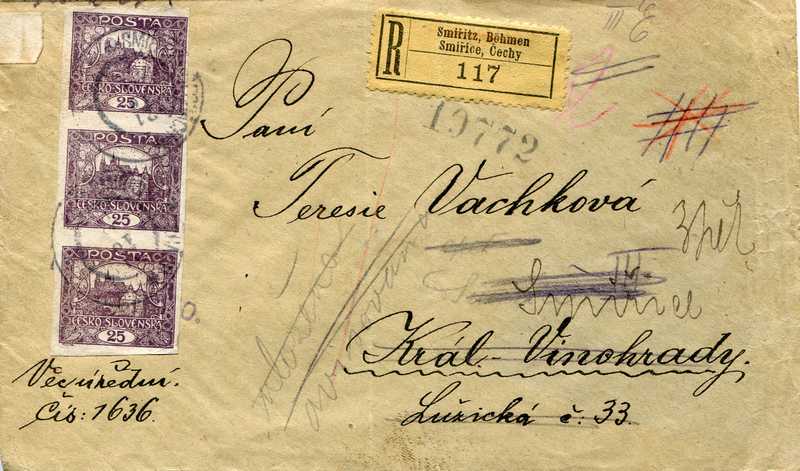 POSTA
25
ČESKO-SLOVENSKÁ
POSTA
ČESKO-SLOVENSKÁ
25
POSTA
ČESKO-SLOVENSKÁ
25
R
Smiřitz, Böhmen
Smiřice, Čechy
117
19772
III
Paní
Teresie Vachková
zpět
Smiřice
Král. Vinohrady.
Lužická č. 33.
Věc úřední.
Čís: 1636.